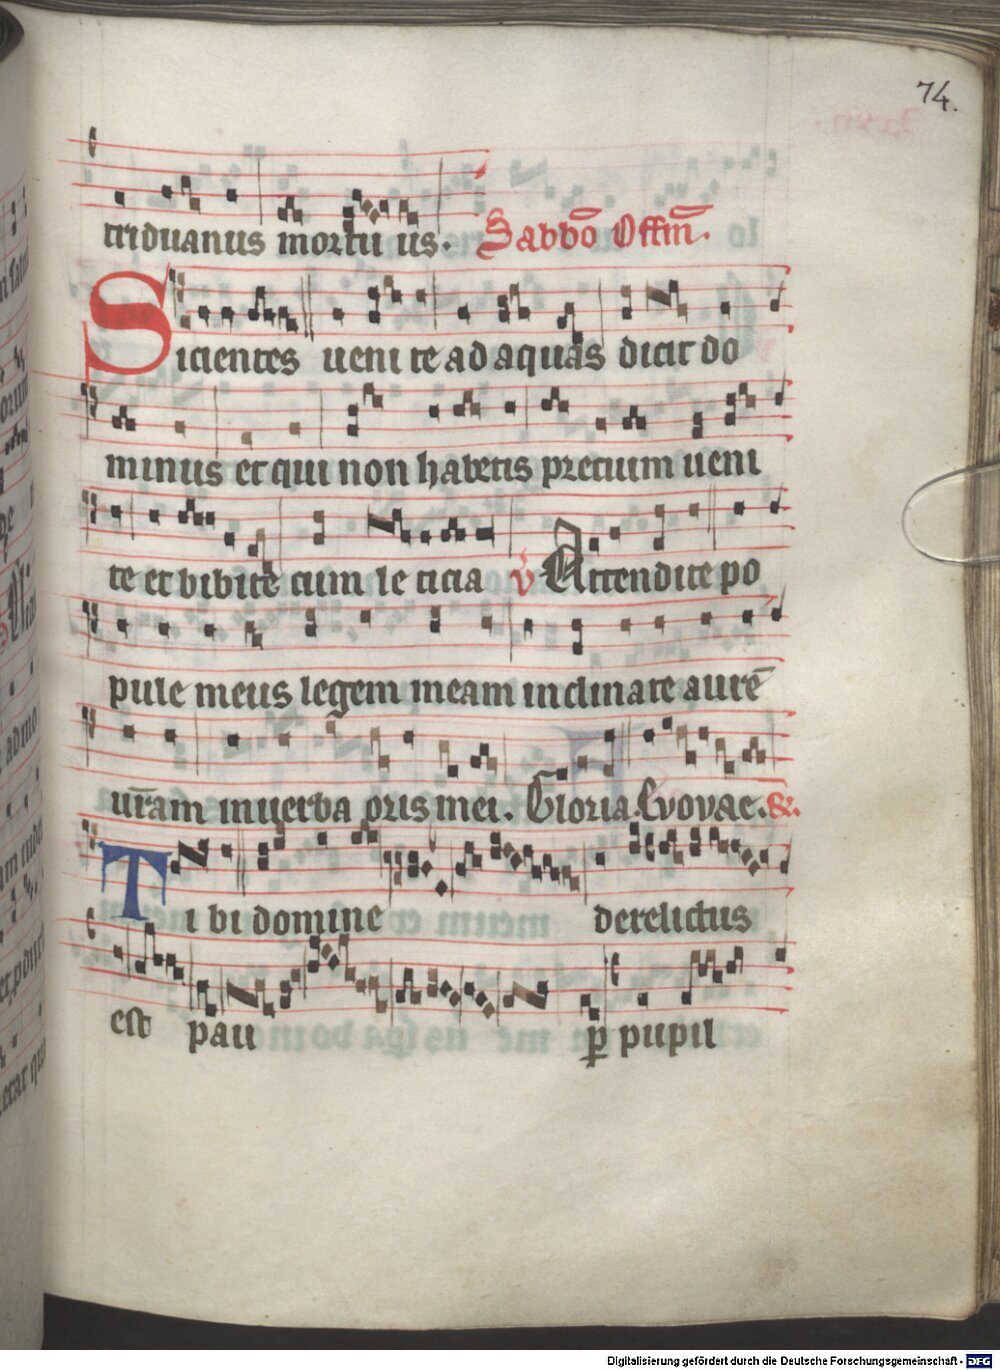 74.
triduanus mortu us. Sabbō Offm̄.
Sicientes ueni te ad aquas dicit do
minus et qui non habetis precium ueni
te et bibite cum le ticia v̊ Attendite po
pule meus legem meam inclinate aurē
ur̄am inuerba oris mei. Gloria. Evovae. &.
Ti bi domine derelictus
est pau p̲ pupil
Digitalisierung gefördert durch die Deutsche Forschungsgemeinschaft - DFG